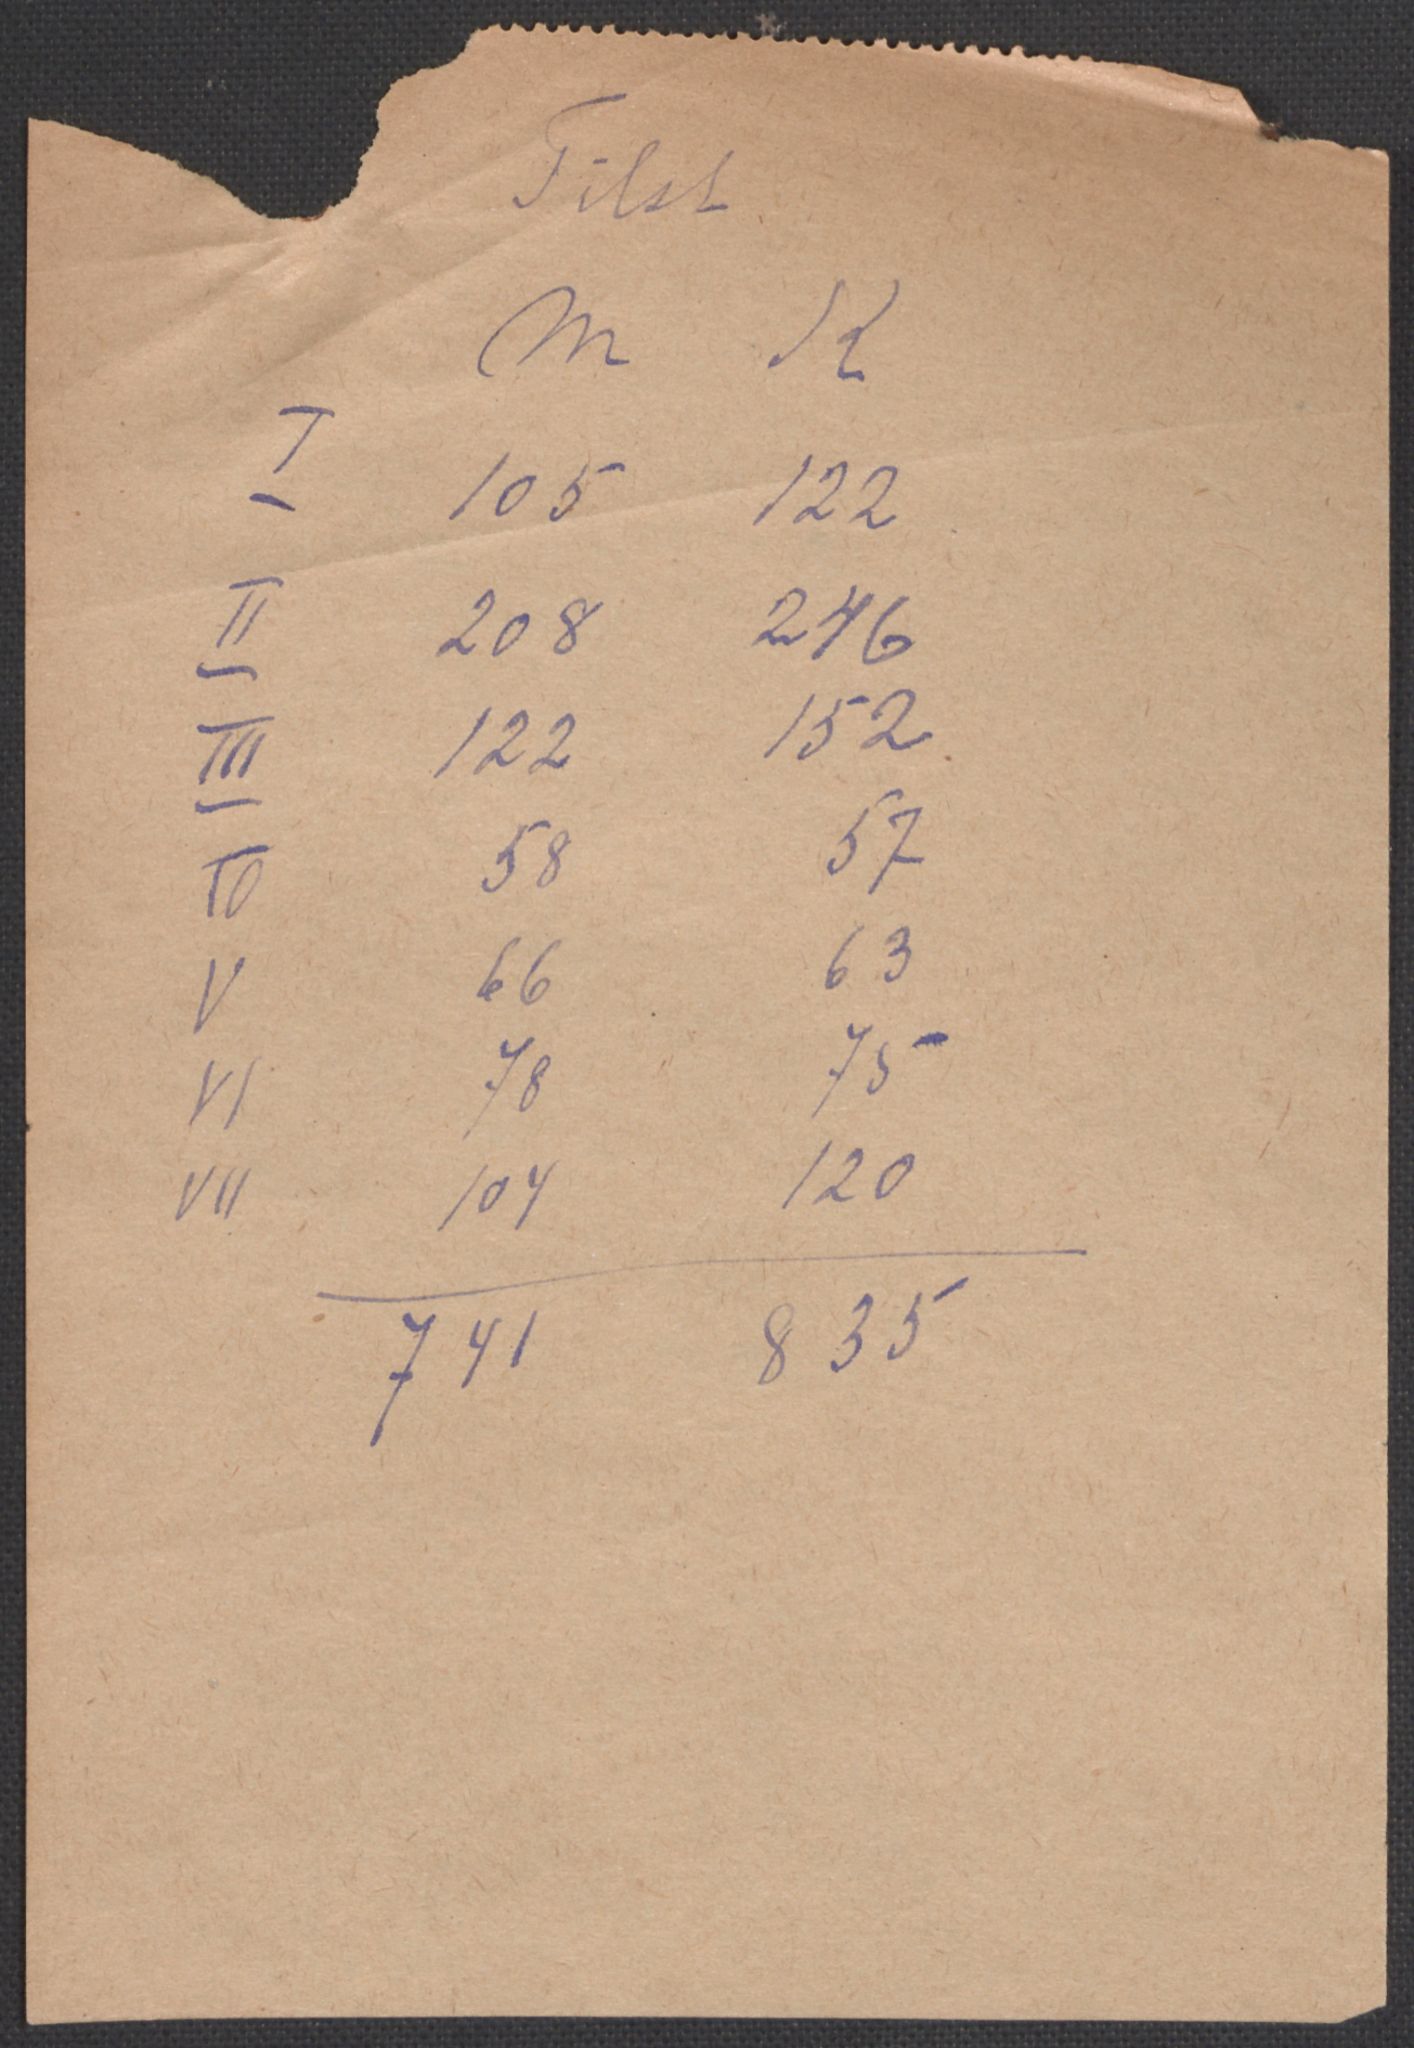 Tilst
M K
I 105 122
II 208 246
III 122 152
IV 58 57
V 66 63
VI 78 75
VII 104 120
741 835